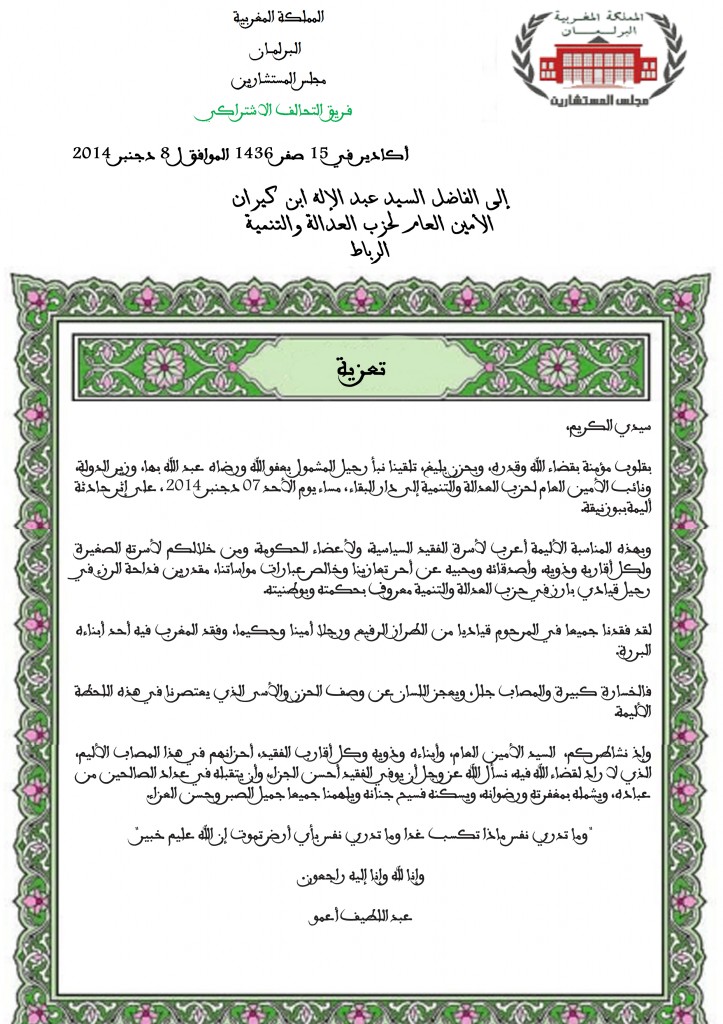 المملكة المغربية
البرلمان
مجلس المستشارين
فريق التحالف الاشتراكي
المملكة المغربية
البرلمان
مجلس المستشارين
أكادير في 15 صفر 1436 الموافق ل 8 دجنبر 2014
إلى الفاضل السيد عبد الإله ابن كيران
الأمين العام لحزب العدالة والتنمية
الرباط
تعزية
سيدي الكريم،
بقلوب مؤمنة بقضاء الله وقدره، وبحزن بليغ، تلقينا نبأ رحيل المشمول بعفو الله ورضاه عبد الله بها، وزير الدولة،
ونائب الأمين العام لحزب العدالة والتنمية إلى دار البقاء، مساء يوم الأحد 07 دجنبر 2014، على إثر حادثة
أليمة ببوزنيقة.
وبهذه المناسبة الأليمة أعرب لأسرة الفقيد السياسية، ولأعضاء الحكومة، ومن خلالكم لأسرته الصغيرة
ولكل أقاربه وذويه، وأصدقائه ومحبيه عن أحر تعازينا وخالص عبارات مواساتنا، مقدرين فداحة الرزء في
رحيل قيادي بارز في حزب العدالة والتنمية معروف بحكمته وبوطنيته.
لقد فقدنا جميعا في المرحوم قياديا من الطراز الرفيع ورجلا أمينا وحكيما، وفقد المغرب فيه أحد أبناءه
البررة.
فالخسارة كبيرة والمصاب جلل، ويعجز اللسان عن وصف الحزن والأسى الذي يعتصرنا في هذه اللحظة
الأليمة.
وإذ نشاطركم، السيد الأمين العام، وأبناءه وذويه وكل أقارب الفقيد، أحزانهم في هذا المصاب الأليم،
الذي لا راد لقضاء الله فيه، نسأل الله عز وجل أن يوفي الفقيد أحسن الجزاء، وأن يتقبله في عداد الصالحين من
عباده، ويشمله بمغفرته ورضوانه، ويسكنه فسيح جنانه ويلهمنا جميعا جميل الصبر وحسن العزاء.
"وما تدري نفس ماذا تكسب غدا وما تدري نفس بأي أرض تموت إن الله عليم خبير"
وإنا لله وإنا إليه راجعون
عبد اللطيف أعمو